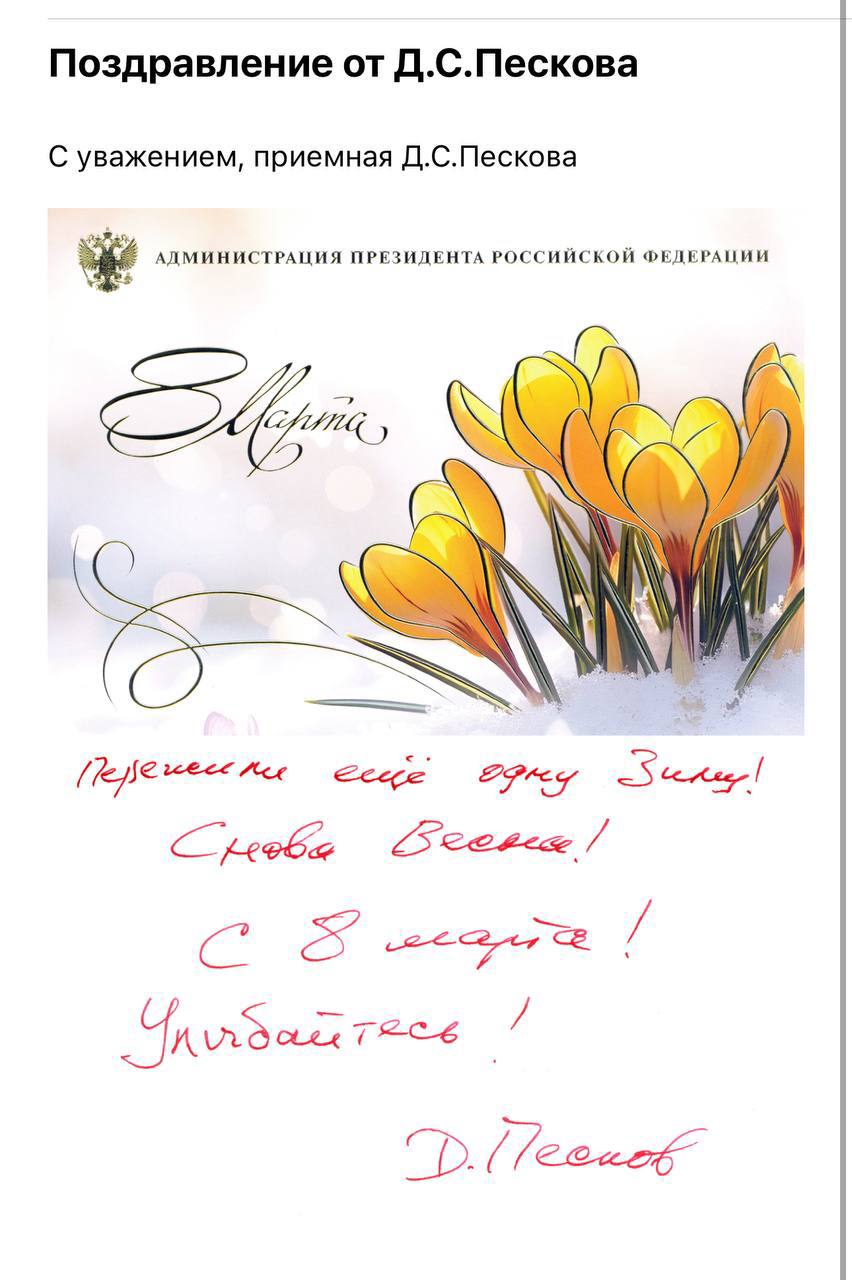 Поздравление от Д.С.Пескова
С уважением, приемная Д.С.Пескова
АДМИНИСТРАЦИЯ ПРЕЗИДЕНТА РОССИЙСКОЙ ФЕДЕРАЦИИ
8 Марта
Пережили ещё одну Зиму!
Снова Весна!
С 8 марта!
Улыбайтесь!
Д. Песков